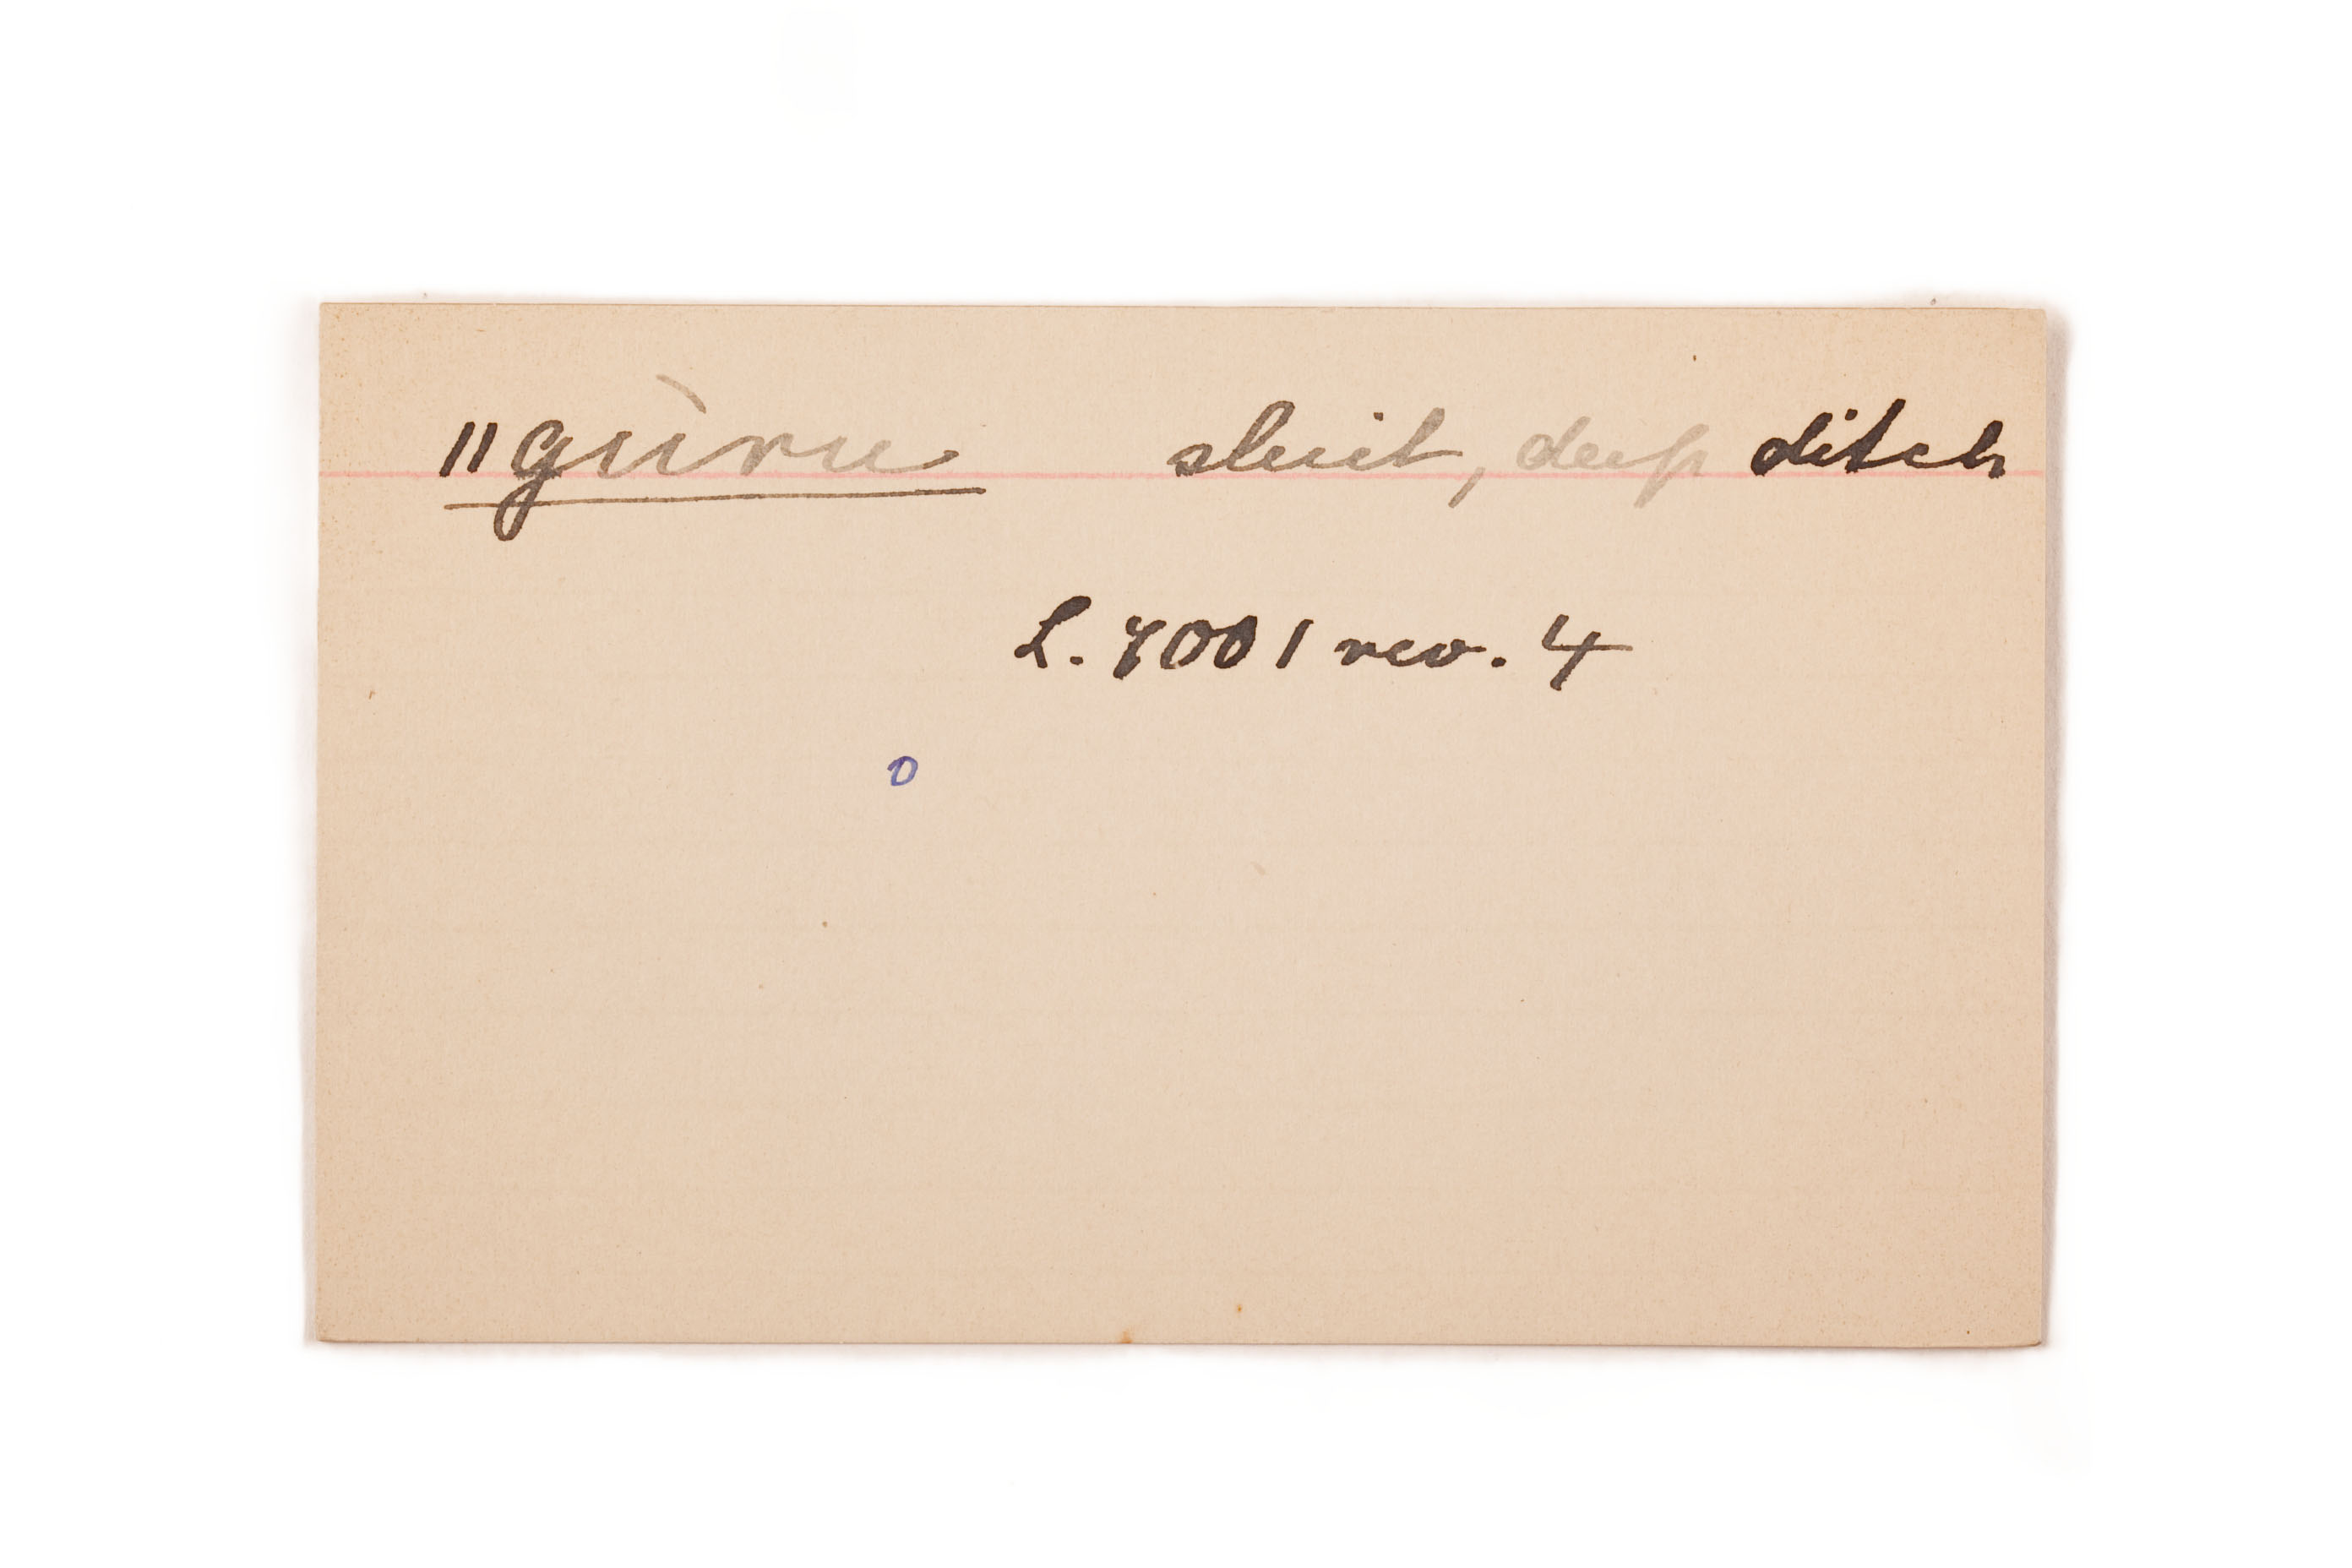 ǁgùru sluit, deep ditch
L. 7001 rev. 4
o